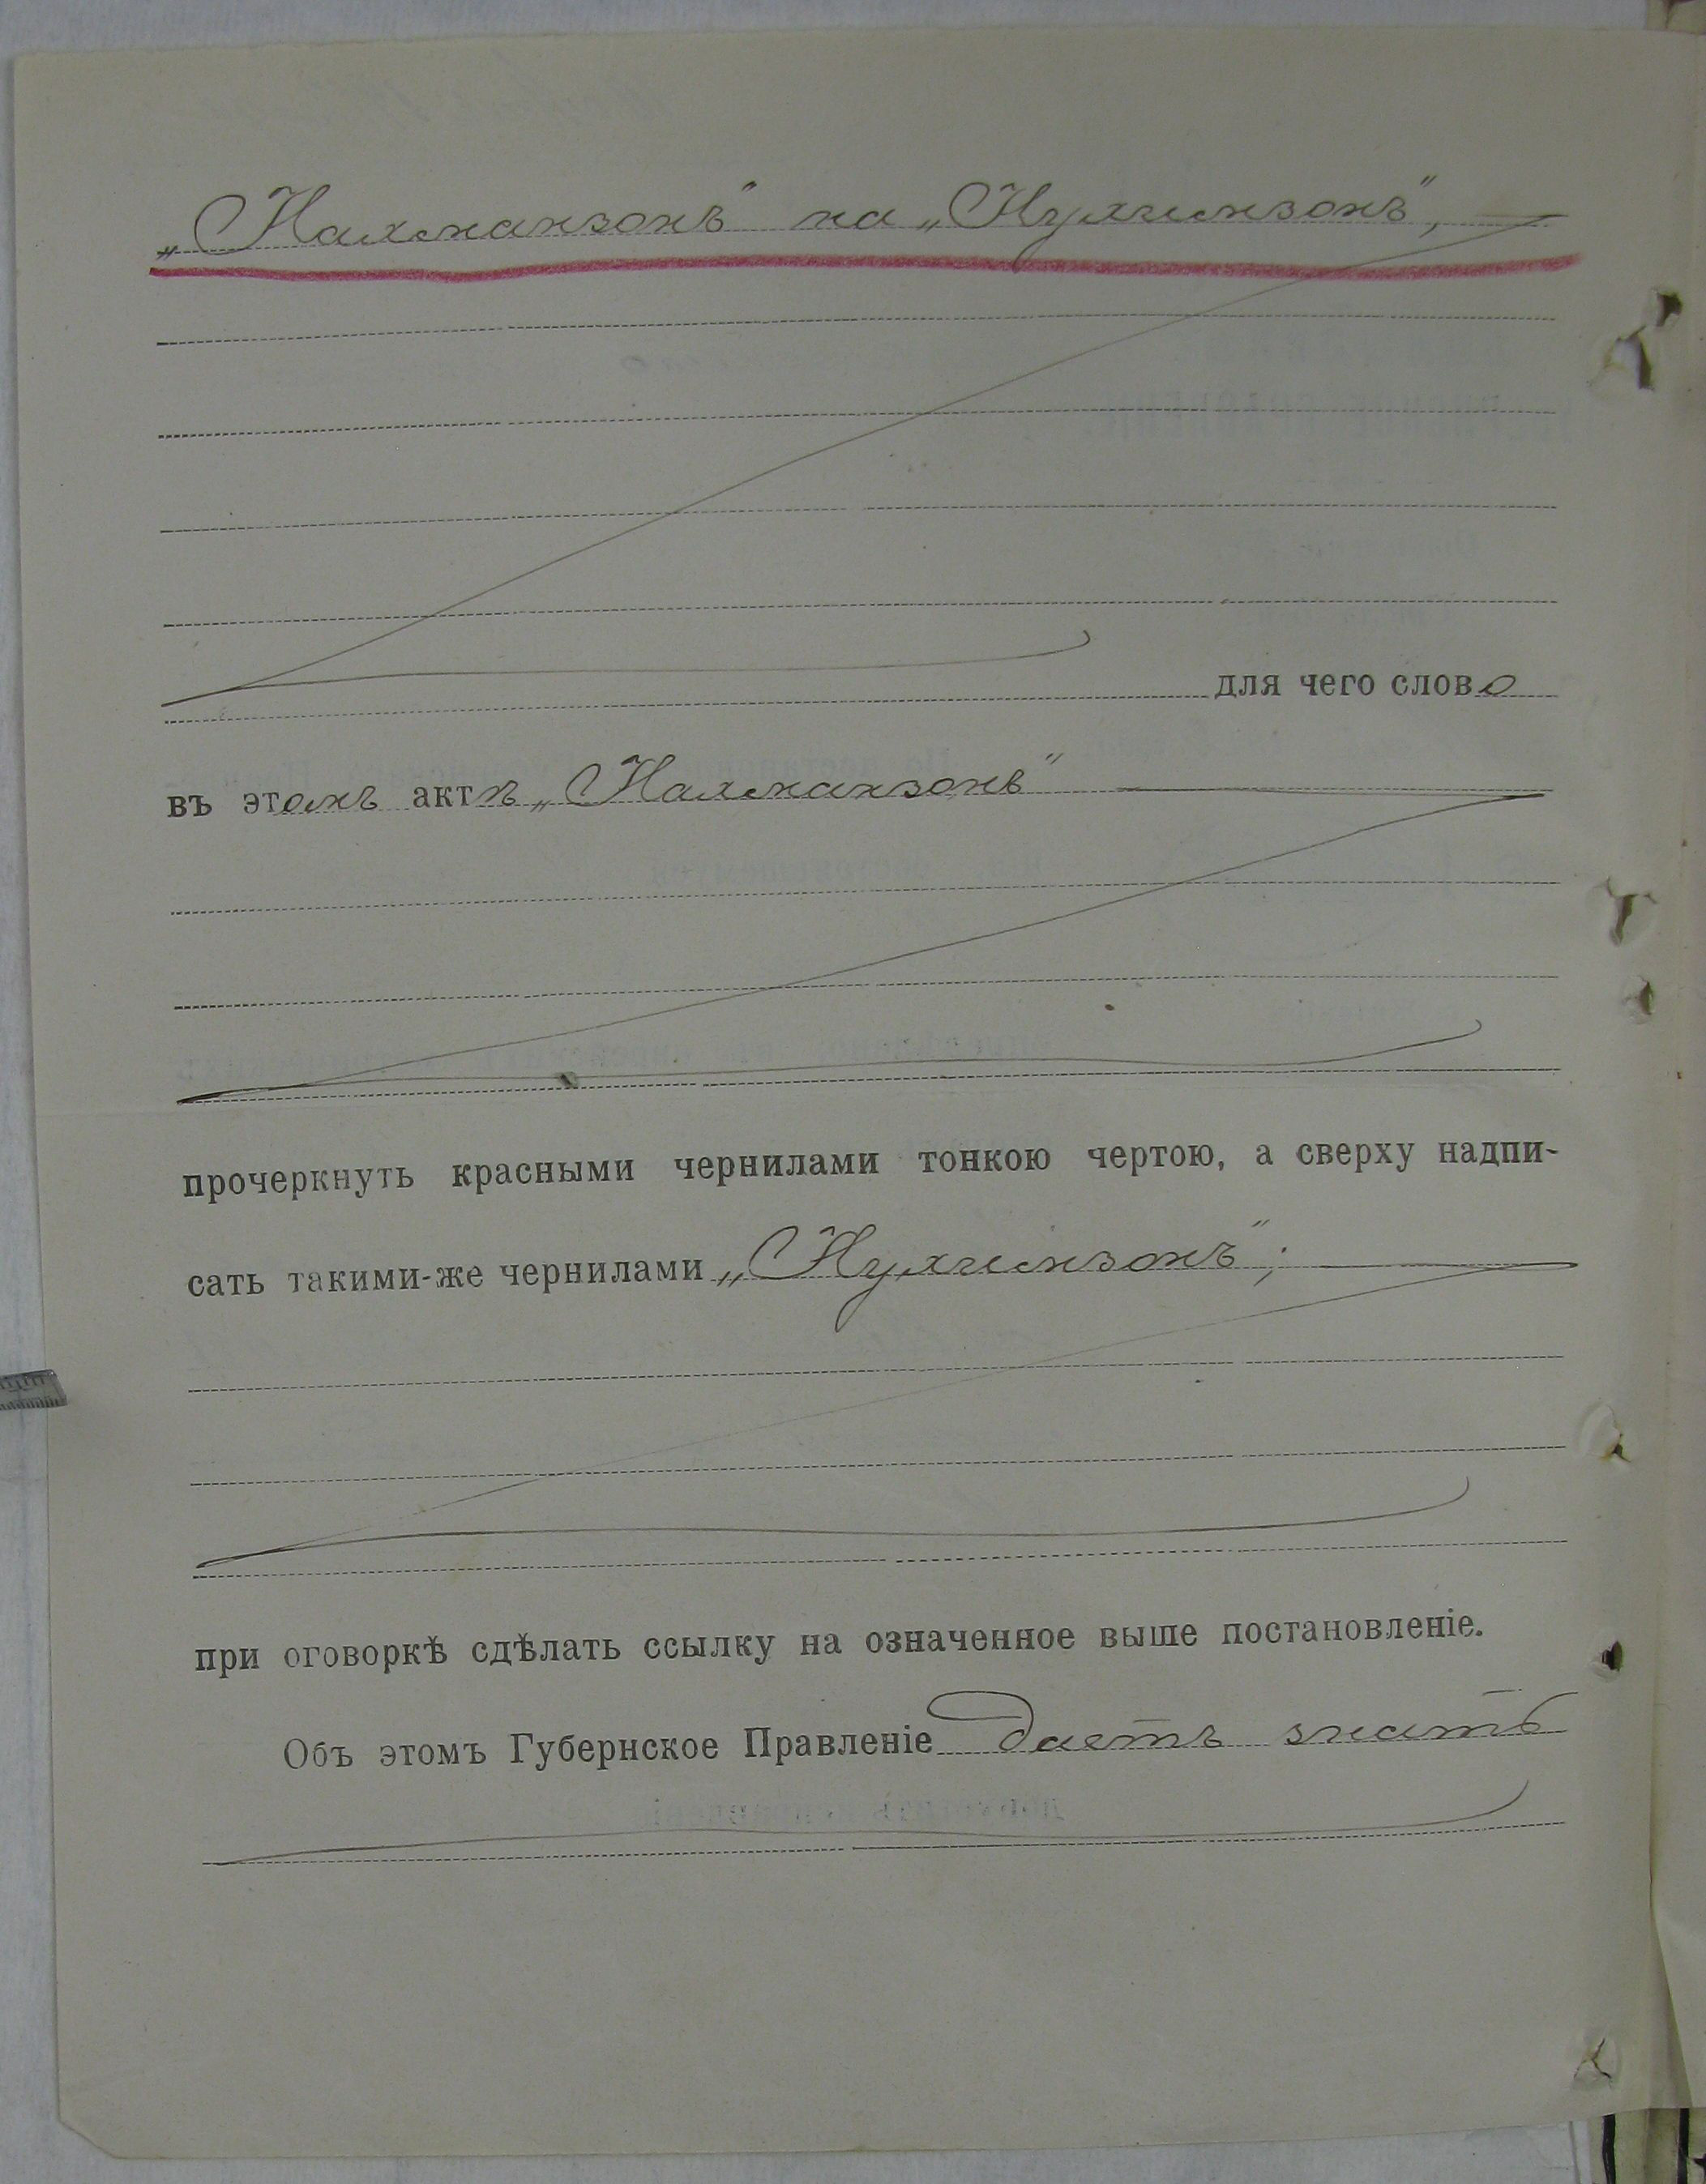 „Нахманзонъ" на „Нухимзонъ",
для чего слово
въ этомъ актѣ „Нахманзонъ"
прочеркнуть красными чернилами тонкою чертою, а сверху надпи-
сать такими-же чернилами „Нухимзонъ";
при оговоркѣ сдѣлать ссылку на означенное выше постановленіе.
Объ этомъ Губернское Правленіе даетъ знать